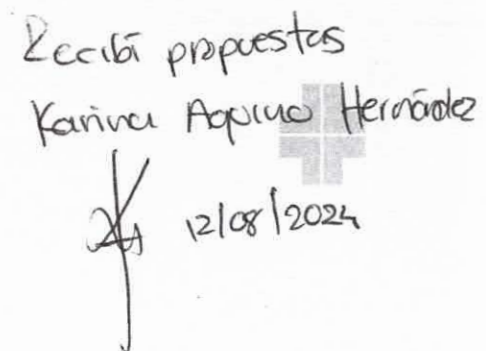 Recibí propuestas
Karina Aquino Hernández
12/08/2024